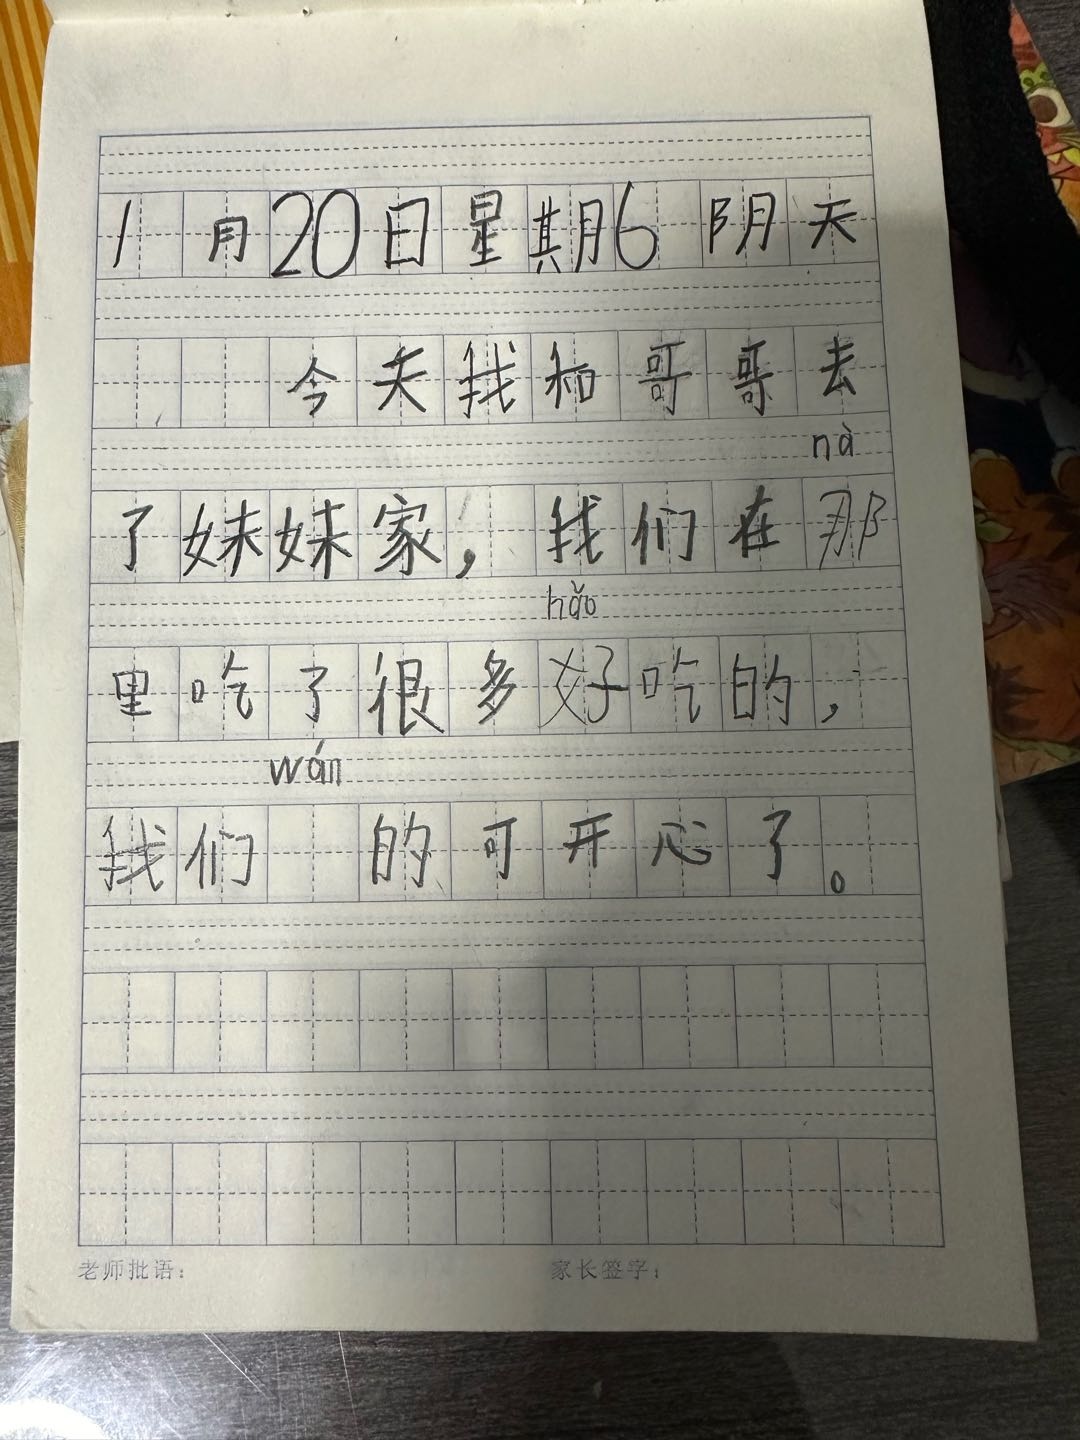 1月20日星期6 阴天
今天我和哥哥去
nà
了妹妹家，我们在那
hǎo
里吃了很多好吃的，
wán
我们 的可开心了。
老师批语： 家长签字：